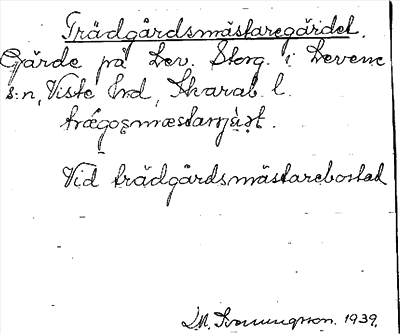 Trädgårdsmästaregärdet.
Gärde på Lev. Storg. i Levene
s:n, Viste hrd, Skarab. l.
Vid trädgårdsmästarebostad
1939.